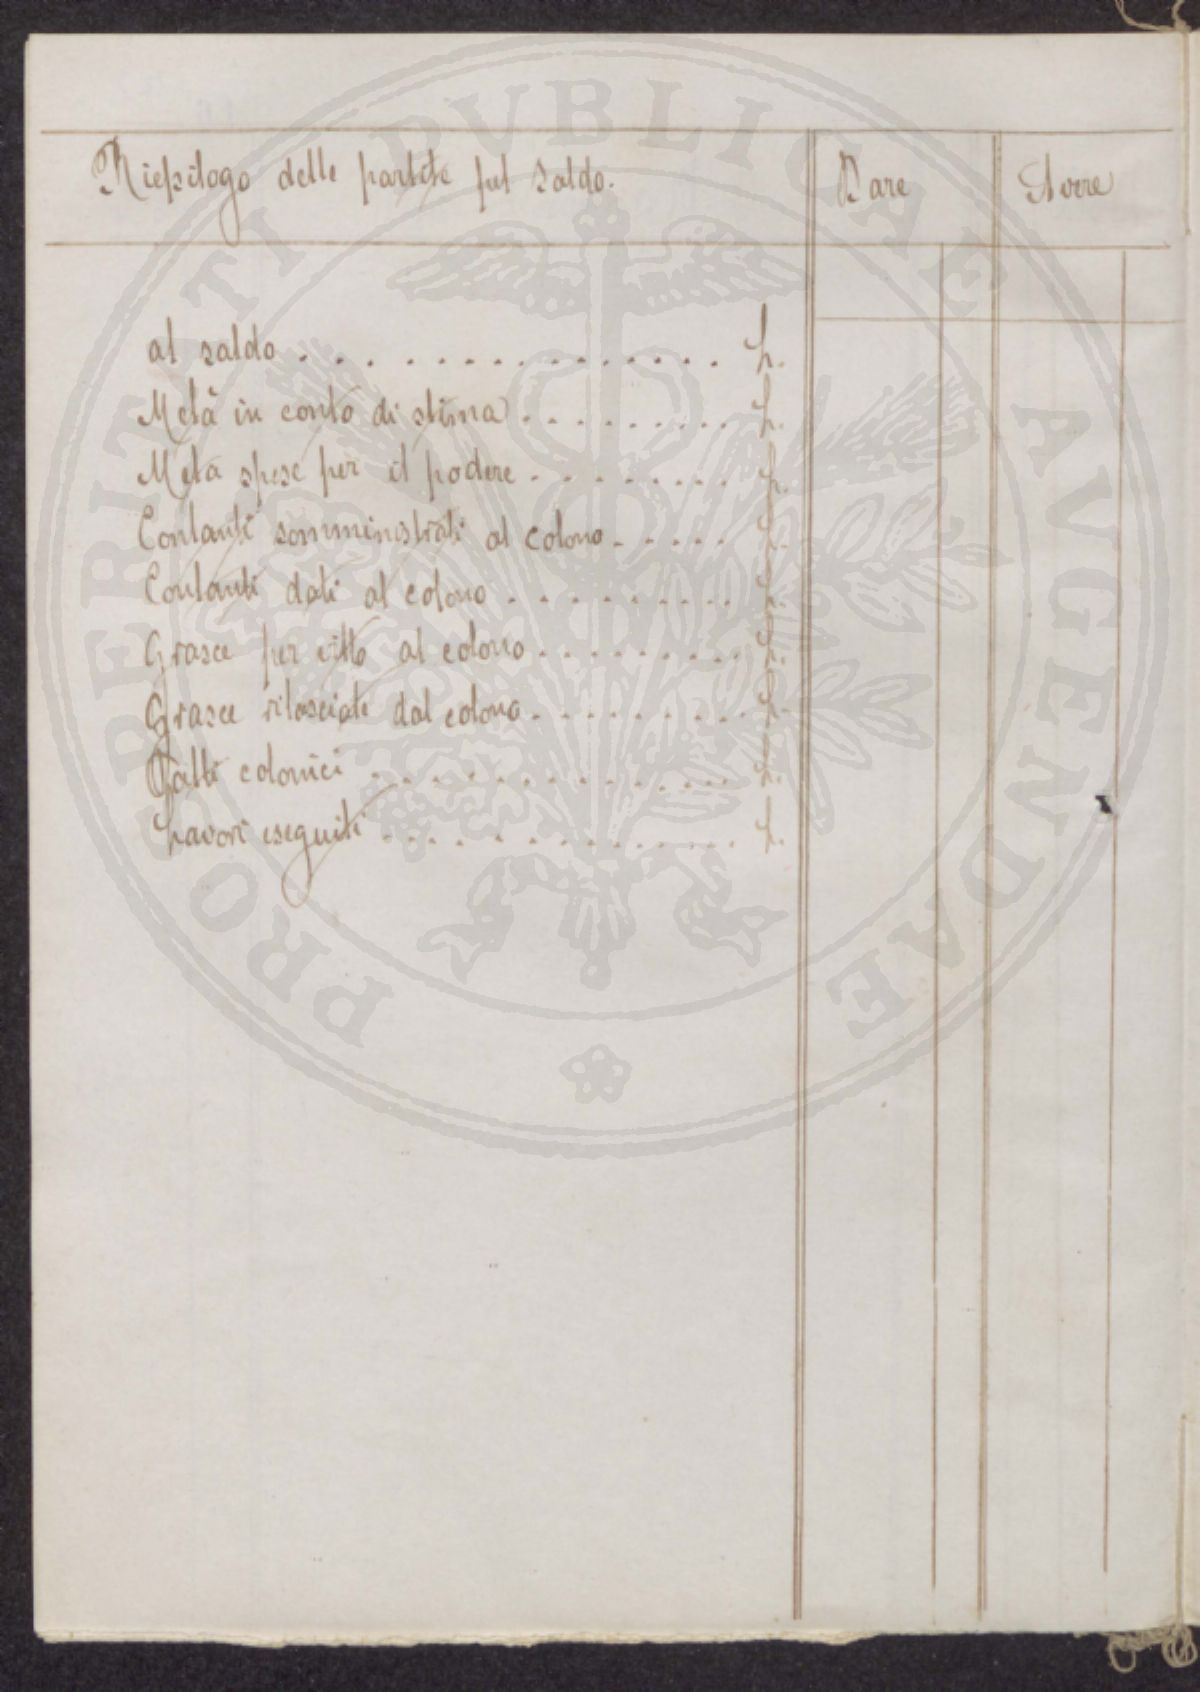 Riepilogo delle partite pel saldo. Dare Avere
al saldo . . . . . . . . . . . . . . . L.
Metà in conto di stima . . . . . . . . . L.
Metà spese per il podere . . . . . . . . L.
Contanti somministrati al colono . . . . . L.
Contanti dati al colono . . . . . . . . . L.
Grasce per vitto al colono . . . . . . . . L.
Grasce rilasciate dal colono . . . . . . . . L.
Patti colonici . . . . . . . . . . . . . . L.
Lavori eseguiti . . . . . . . . . . . . . . L.
PROSPERITATI PVBLICAE AVGENDAE